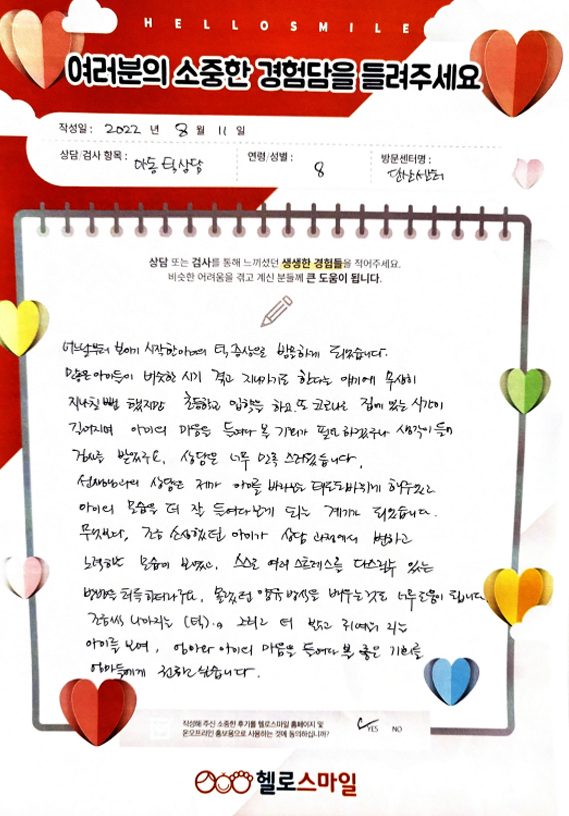 HELLOSMILE
여러분의 소중한 경험담을 들려주세요
작성일 : 2022 년 8 월 11 일
상담/검사 항목 : 아동 틱상담
연령/성별 : 8
방문센터명 :
상담 또는 검사를 통해 느끼셨던 생생한 경험들을 적어주세요.
비슷한 어려움을 겪고 계신 분들께 큰 도움이 됩니다.
어느날부터 보이기 시작한 아이의 틱 증상으로 방문하게 되었습니다.
많은 아이들이 비슷한 시기 겪고 지나가기도 한다는 얘기에 무심히
지나칠뻔 했지만 초등학교 입학을 하고 또 코로나로 집에 있는 시간이
길어지며 아이의 마음을 들여다 볼 기회가 필요하겠구나 생각이 들어
검사를 받았구요, 상담은 너무 만족스러웠습니다.
선생님과의 상담은 제가 아이를 바라보는 태도도 바뀌게 해주었고
아이의 모습을 더 잘 들여다보게 되는 계기가 되었습니다.
무엇보다, 조금 소심했던 아이가 상담 과정에서 변하고
노력하는 모습이 보였고, 스스로 여러 스트레스를 다스릴수 있는
방법을 터득해나가구요, 몰랐던 양육방식을 배우는것도 너무 도움이 됩니다.
조금씩 나아지는 (틱)과 그리고 더 밝고 귀여워 지는
아이를 보며, 엄마와 아이의 마음을 들여다 볼 좋은 기회를
엄마들에게 전하고 싶습니다.
작성해 주신 소중한 후기를 헬로스마일 홈페이지 및
온오프라인 홍보용으로 사용하는 것에 동의하십니까?
YES NO
헬로스마일